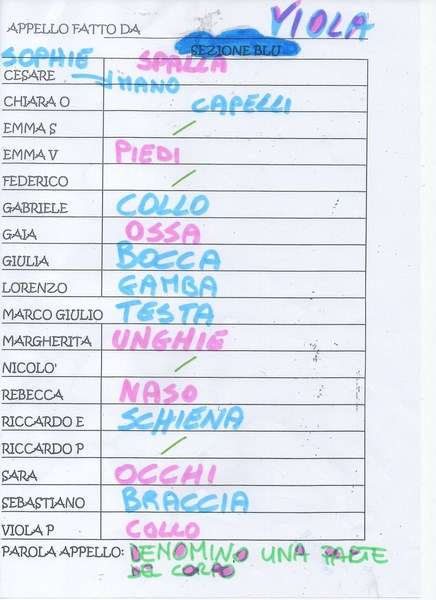 APPELLO FATTO DA VIOLA
SEZIONE BLU
SOPHIE SPALLA
CESARE MANO
CHIARA O CAPELLI
EMMA S /
EMMA V PIEDI
FEDERICO /
GABRIELE COLLO
GAIA OSSA
GIULIA BOCCA
LORENZO GAMBA
MARCO GIULIO TESTA
MARGHERITA UNGHIE
NICOLO' /
REBECCA NASO
RICCARDO E SCHIENA
RICCARDO P /
SARA OCCHI
SEBASTIANO BRACCIA
VIOLA P COLLO
PAROLA APPELLO: DENOMINO UNA PARTE
DEL CORPO